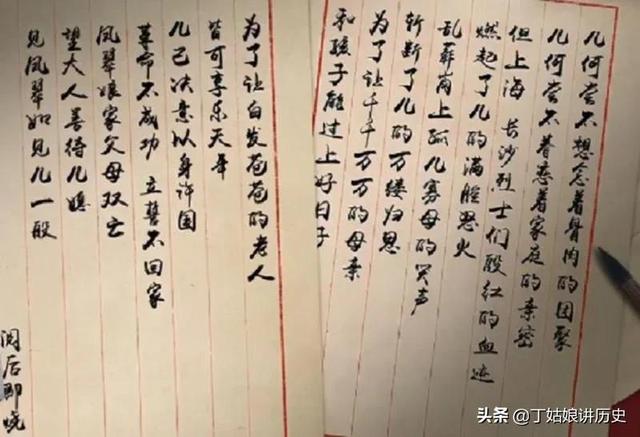 儿何尝不想念着骨肉的团聚
儿何尝不眷恋着家庭的亲密
但上海 长沙烈士们殷红的血迹
燃起了儿的满腔怒火
乱葬岗上孤儿寡母的哭声
斩断了儿的万缕归思
为了让千千万万的母亲
和孩子能过上好日子
为了让白发苍苍的老人
皆可享乐天年
儿已决意以身许国
革命不成功 立誓不回家
凤翠娘家父母双亡
望大人善待儿媳
见凤翠如见儿一般
阅后即烧
头条 @丁姑娘讲历史